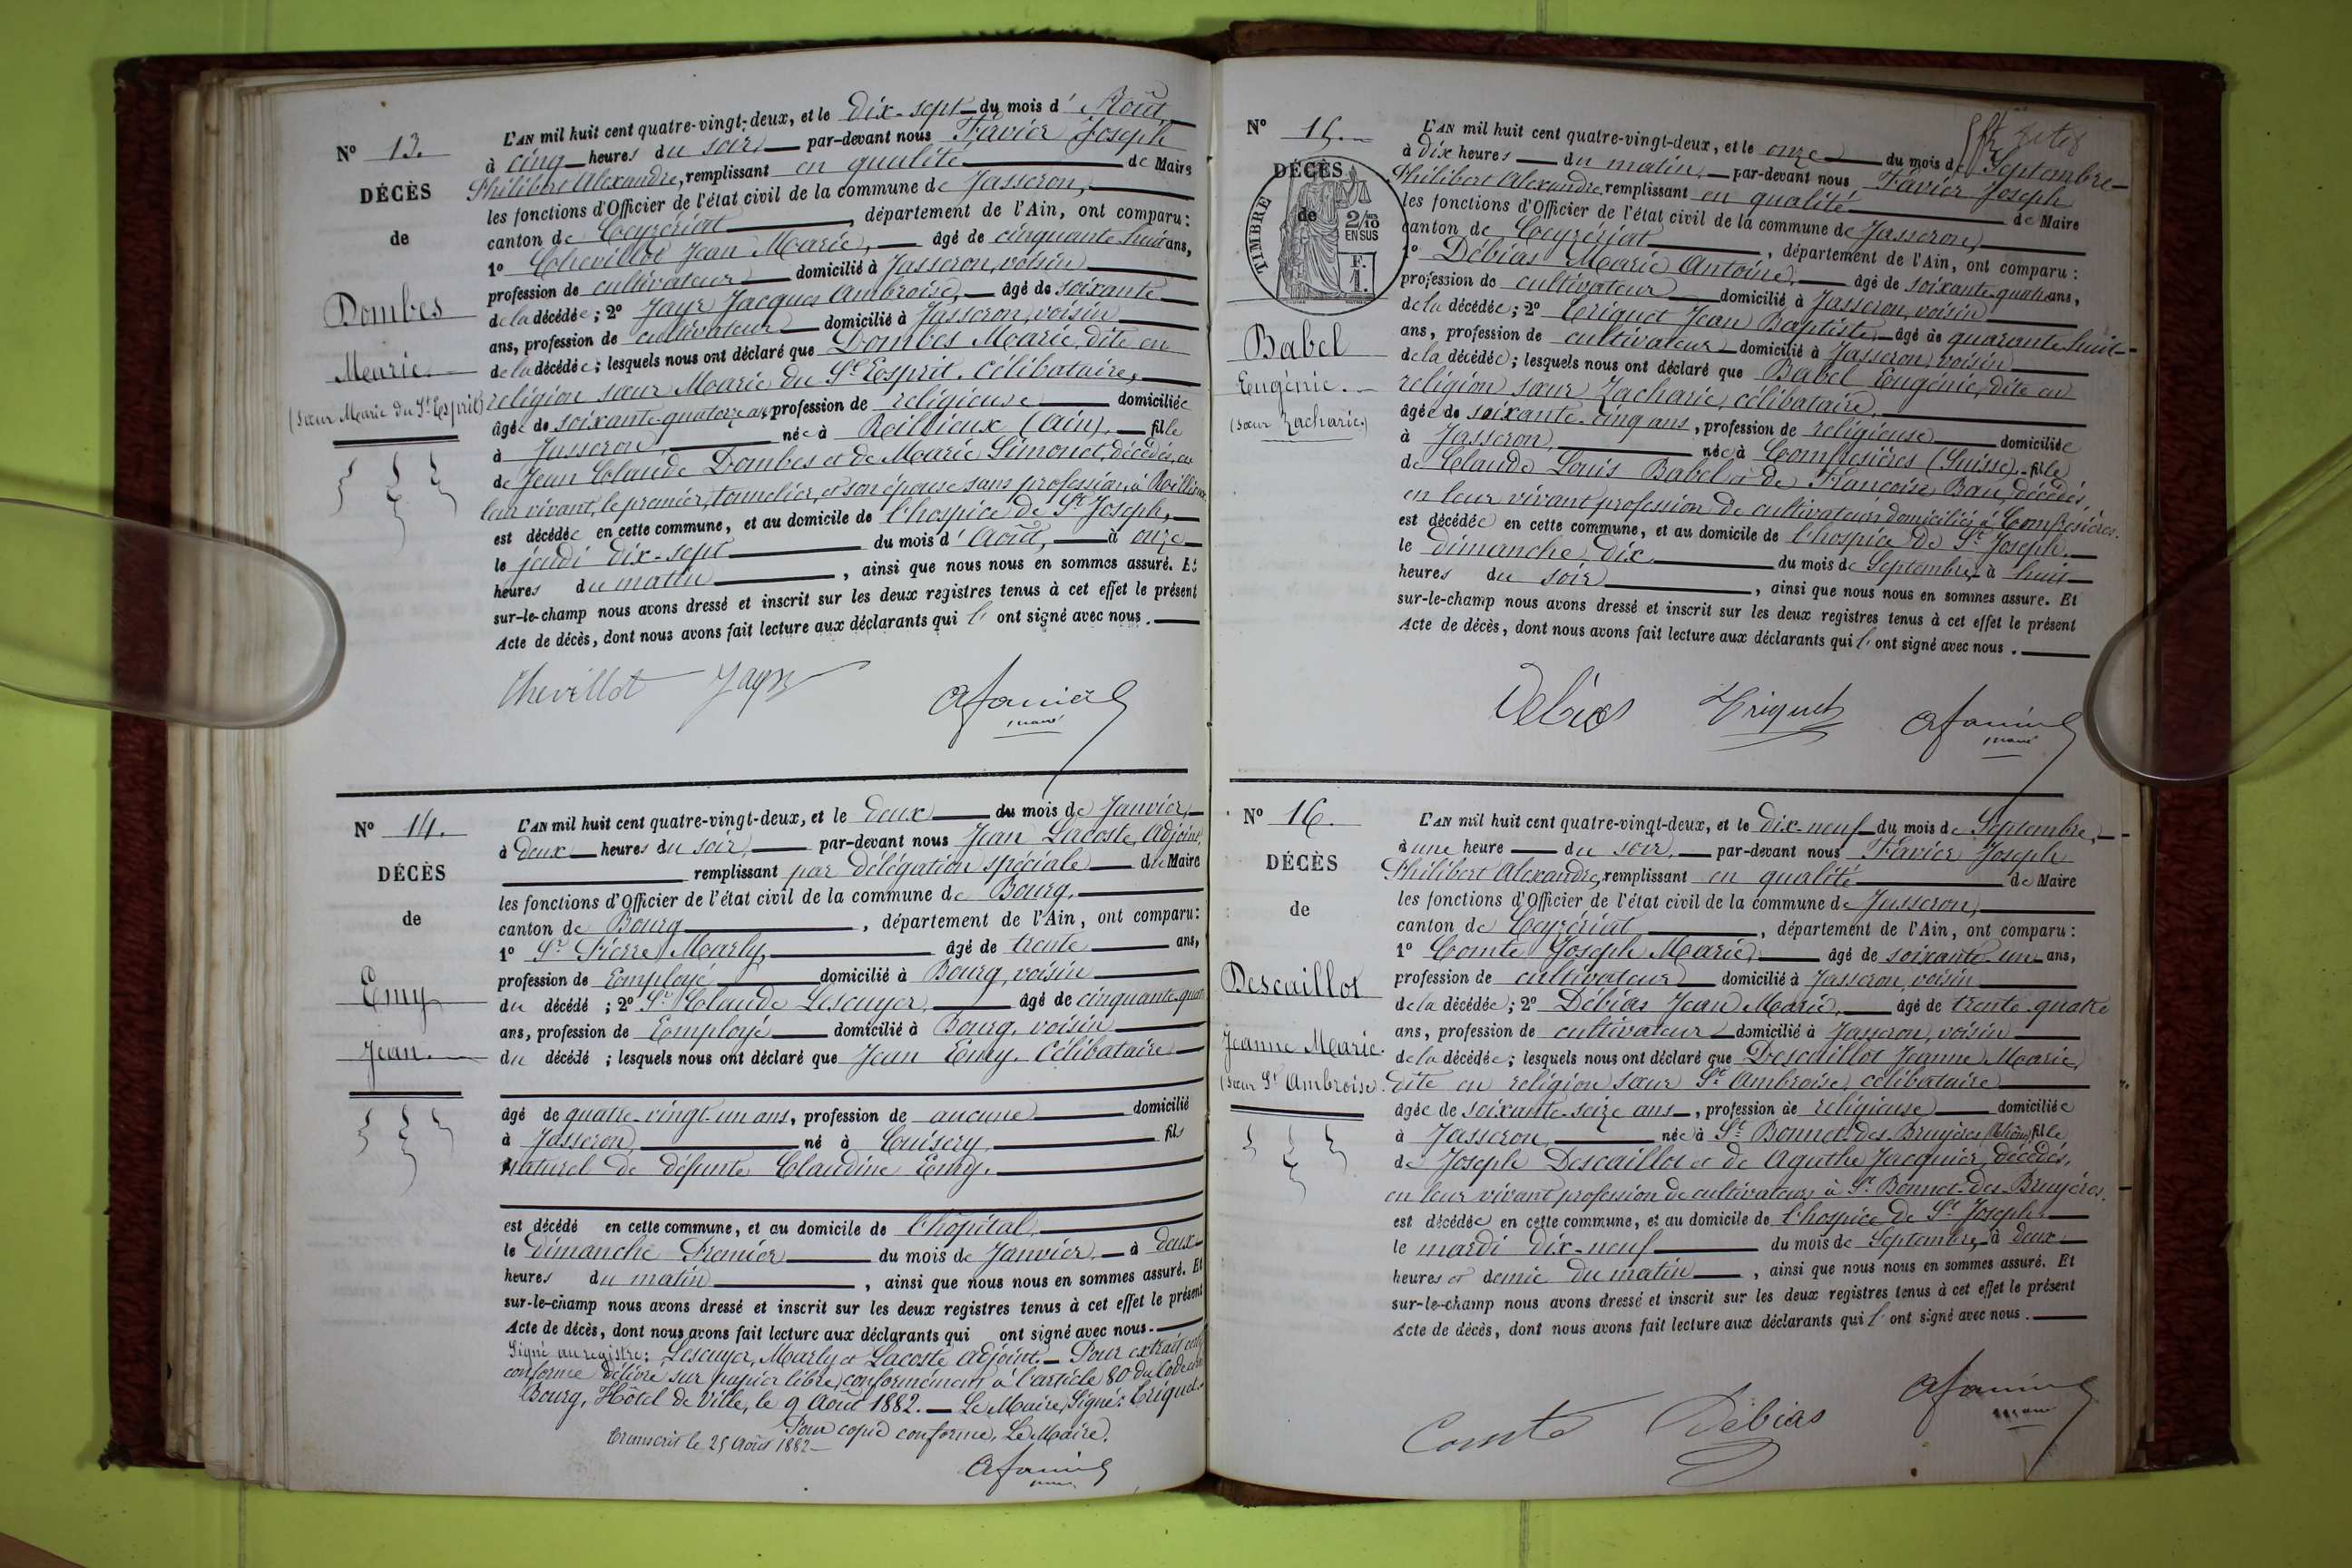 Nº 13.
DÉCÈS
de
Dombes
Marie.
(Sœur Marie du St Esprit)
L'AN mil huit cent quatre-vingt-deux, et le dix-sept du mois d'Août,
à cinq heures du soir, par-devant nous Favier Joseph
Philibert Alexandre, remplissant en qualité de Maire
les fonctions d'Officier de l'état civil de la commune de Jasseron,
canton de Ceyzériat, département de l'Ain, ont comparu :
1º Chevillot Jean Marie, âgé de cinquante huit ans,
profession de cultivateur domicilié à Jasseron, voisin
de la décédée ; 2º Jayr Jacques Ambroise, âgé de soixante
ans, profession de cultivateur domicilié à Jasseron, voisin
de la décédée ; lesquels nous ont déclaré que Dombes Marie, dite en
religion sœur Marie du St Esprit, célibataire,
âgée de soixante-quatorze ans, profession de religieuse domiciliée
à Jasseron, née à Reillieux (Ain), fille
de Jean Claude Dombes et de Marie Simonet, décédés, en
leur vivant, le premier, tonnelier, et son épouse sans profession, à Reillieux
est décédée en cette commune, et au domicile de l'hospice de St Joseph,
le jeudi dix-sept du mois d'Août, à onze
heures du matin, ainsi que nous nous en sommes assuré. Et
sur-le-champ nous avons dressé et inscrit sur les deux registres tenus à cet effet le présent
Acte de décès, dont nous avons fait lecture aux déclarants qui l'ont signé avec nous.
Chevillot Jayr AFavier
maire
Nº 14.
DÉCÈS
de
Emy
Jean.
L'AN mil huit cent quatre-vingt-deux, et le deux du mois de Janvier,
à deux heures du soir, par-devant nous Jean Lacoste, Adjoint,
remplissant par délégation spéciale du Maire
les fonctions d'Officier de l'état civil de la commune de Bourg,
canton de Bourg, département de l'Ain, ont comparu :
1º Sr Pierre Marly, âgé de trente ans,
profession de Employé domicilié à Bourg, voisin
du décédé ; 2º Sr Claude Lescuyer, âgé de cinquante-quatre
ans, profession de Employé domicilié à Bourg, voisin
du décédé ; lesquels nous ont déclaré que Jean Emy, Célibataire
âgé de quatre-vingt-un ans, profession de aucune domicilié
à Jasseron, né à Cuisery, fils
naturel de défunte Claudine Emy.
est décédé en cette commune, et au domicile de l'hôpital,
le Dimanche Premier du mois de Janvier, à deux
heures du matin, ainsi que nous nous en sommes assuré. Et
sur-le-champ nous avons dressé et inscrit sur les deux registres tenus à cet effet le présent
Acte de décès, dont nous avons fait lecture aux déclarants qui ont signé avec nous.
Signé au registre : Lescuyer, Marly et Lacoste adjoint. Pour extrait
conforme délivré sur papier libre, conformément à l'article 80 du Code
Bourg, Hôtel de Ville, le 9 Août 1882. Le Maire, Signé : Criquet.
Pour copie conforme, Le Maire.
Transcrit le 25 Août 1882
AFavier
Nº 15.
DÉCÈS
de
TIMBRE
2/10 ENSUS
F. 1.
Babel
Eugénie.
(Sœur Zacharie.)
L'AN mil huit cent quatre-vingt-deux, et le onze du mois de Septembre
à dix heures du matin, par-devant nous Favier Joseph
Philibert Alexandre remplissant en qualité de Maire
les fonctions d'Officier de l'état civil de la commune de Jasseron,
canton de Ceyzériat, département de l'Ain, ont comparu :
1º Débias Marie Antoine, âgé de soixante-quatre ans,
profession de cultivateur domicilié à Jasseron, voisin
de la décédée ; 2º Criquet Jean Baptiste, âgé de quarante huit
ans, profession de cultivateur domicilié à Jasseron, voisin
de la décédée ; lesquels nous ont déclaré que Babel Eugénie, dite en
religion sœur Zacharie, célibataire,
âgée de soixante-cinq ans, profession de religieuse domiciliée
à Jasseron, née à Compesières (Suisse), fille
de Claude Louis Babel et de Françoise Bau, décédés,
en leur vivant profession de cultivateurs domiciliés à Compesières.
est décédée en cette commune, et au domicile de l'hospice de St Joseph.
le dimanche dix du mois de Septembre, à huit
heures du soir, ainsi que nous nous en sommes assuré. Et
sur-le-champ nous avons dressé et inscrit sur les deux registres tenus à cet effet le présent
Acte de décès, dont nous avons fait lecture aux déclarants qui l'ont signé avec nous.
Debias Criquet AFavier
maire
Nº 16.
DÉCÈS
de
Descaillot
Jeanne Marie.
(Sœur St Ambroise.
L'AN mil huit cent quatre-vingt-deux, et le dix-neuf du mois de Septembre,
à une heure du soir, par-devant nous Favier Joseph
Philibert Alexandre, remplissant en qualité de Maire
les fonctions d'Officier de l'état civil de la commune de Jasseron,
canton de Ceyzériat, département de l'Ain, ont comparu :
1º Comte Joseph Marie, âgé de soixante-un ans,
profession de cultivateur domicilié à Jasseron, voisin
de la décédée ; 2º Débias Jean Marie, âgé de trente-quatre
ans, profession de cultivateur domicilié à Jasseron, voisin
de la décédée ; lesquels nous ont déclaré que Descaillot Jeanne Marie,
dite en religion sœur St Ambroise, célibataire
âgée de soixante-seize ans, profession de religieuse domiciliée
à Jasseron, née à St Bonnet-des-Bruyères (Rhône) fille
de Joseph Descaillot et de Agathe Jacquier, décédés,
en leur vivant profession de cultivateurs à St Bonnet-des-Bruyères.
est décédée en cette commune, et au domicile de l'hospice de St Joseph
le mardi dix-neuf du mois de Septembre, à deux
heures et demie du matin, ainsi que nous nous en sommes assuré. Et
sur-le-champ nous avons dressé et inscrit sur les deux registres tenus à cet effet le présent
Acte de décès, dont nous avons fait lecture aux déclarants qui l'ont signé avec nous.
Comte Débias AFavier
maire